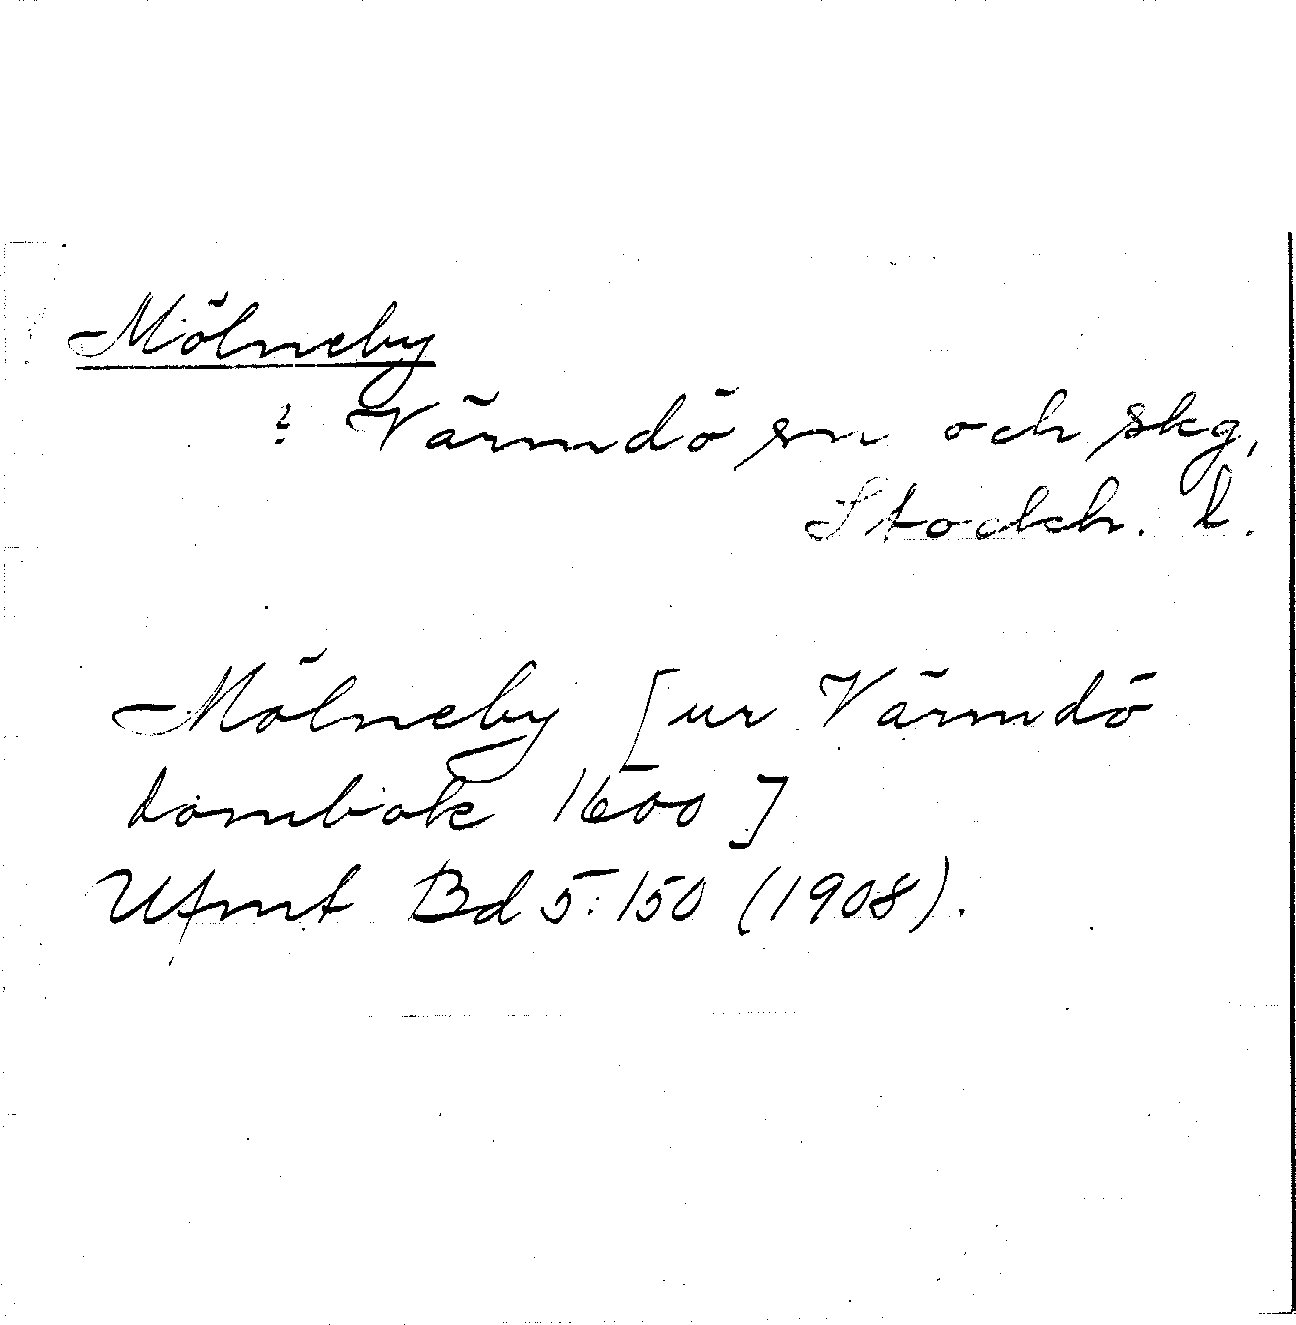 Mölneby
? Värmdö sn och skg,
Stockh. l.
Mölneby [ur Värmdö
dombok 1600]
Ufmt Bd 5: 150 (1908).